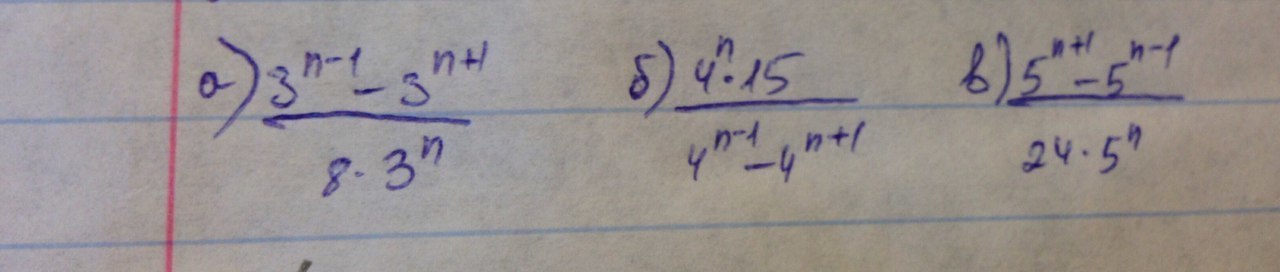 а) (3^{n-1} - 3^{n+1}) / (8 · 3^n)   б) (4^n · 15) / (4^{n-1} - 4^{n+1})   в) (5^{n+1} - 5^{n-1}) / (24 · 5^n)